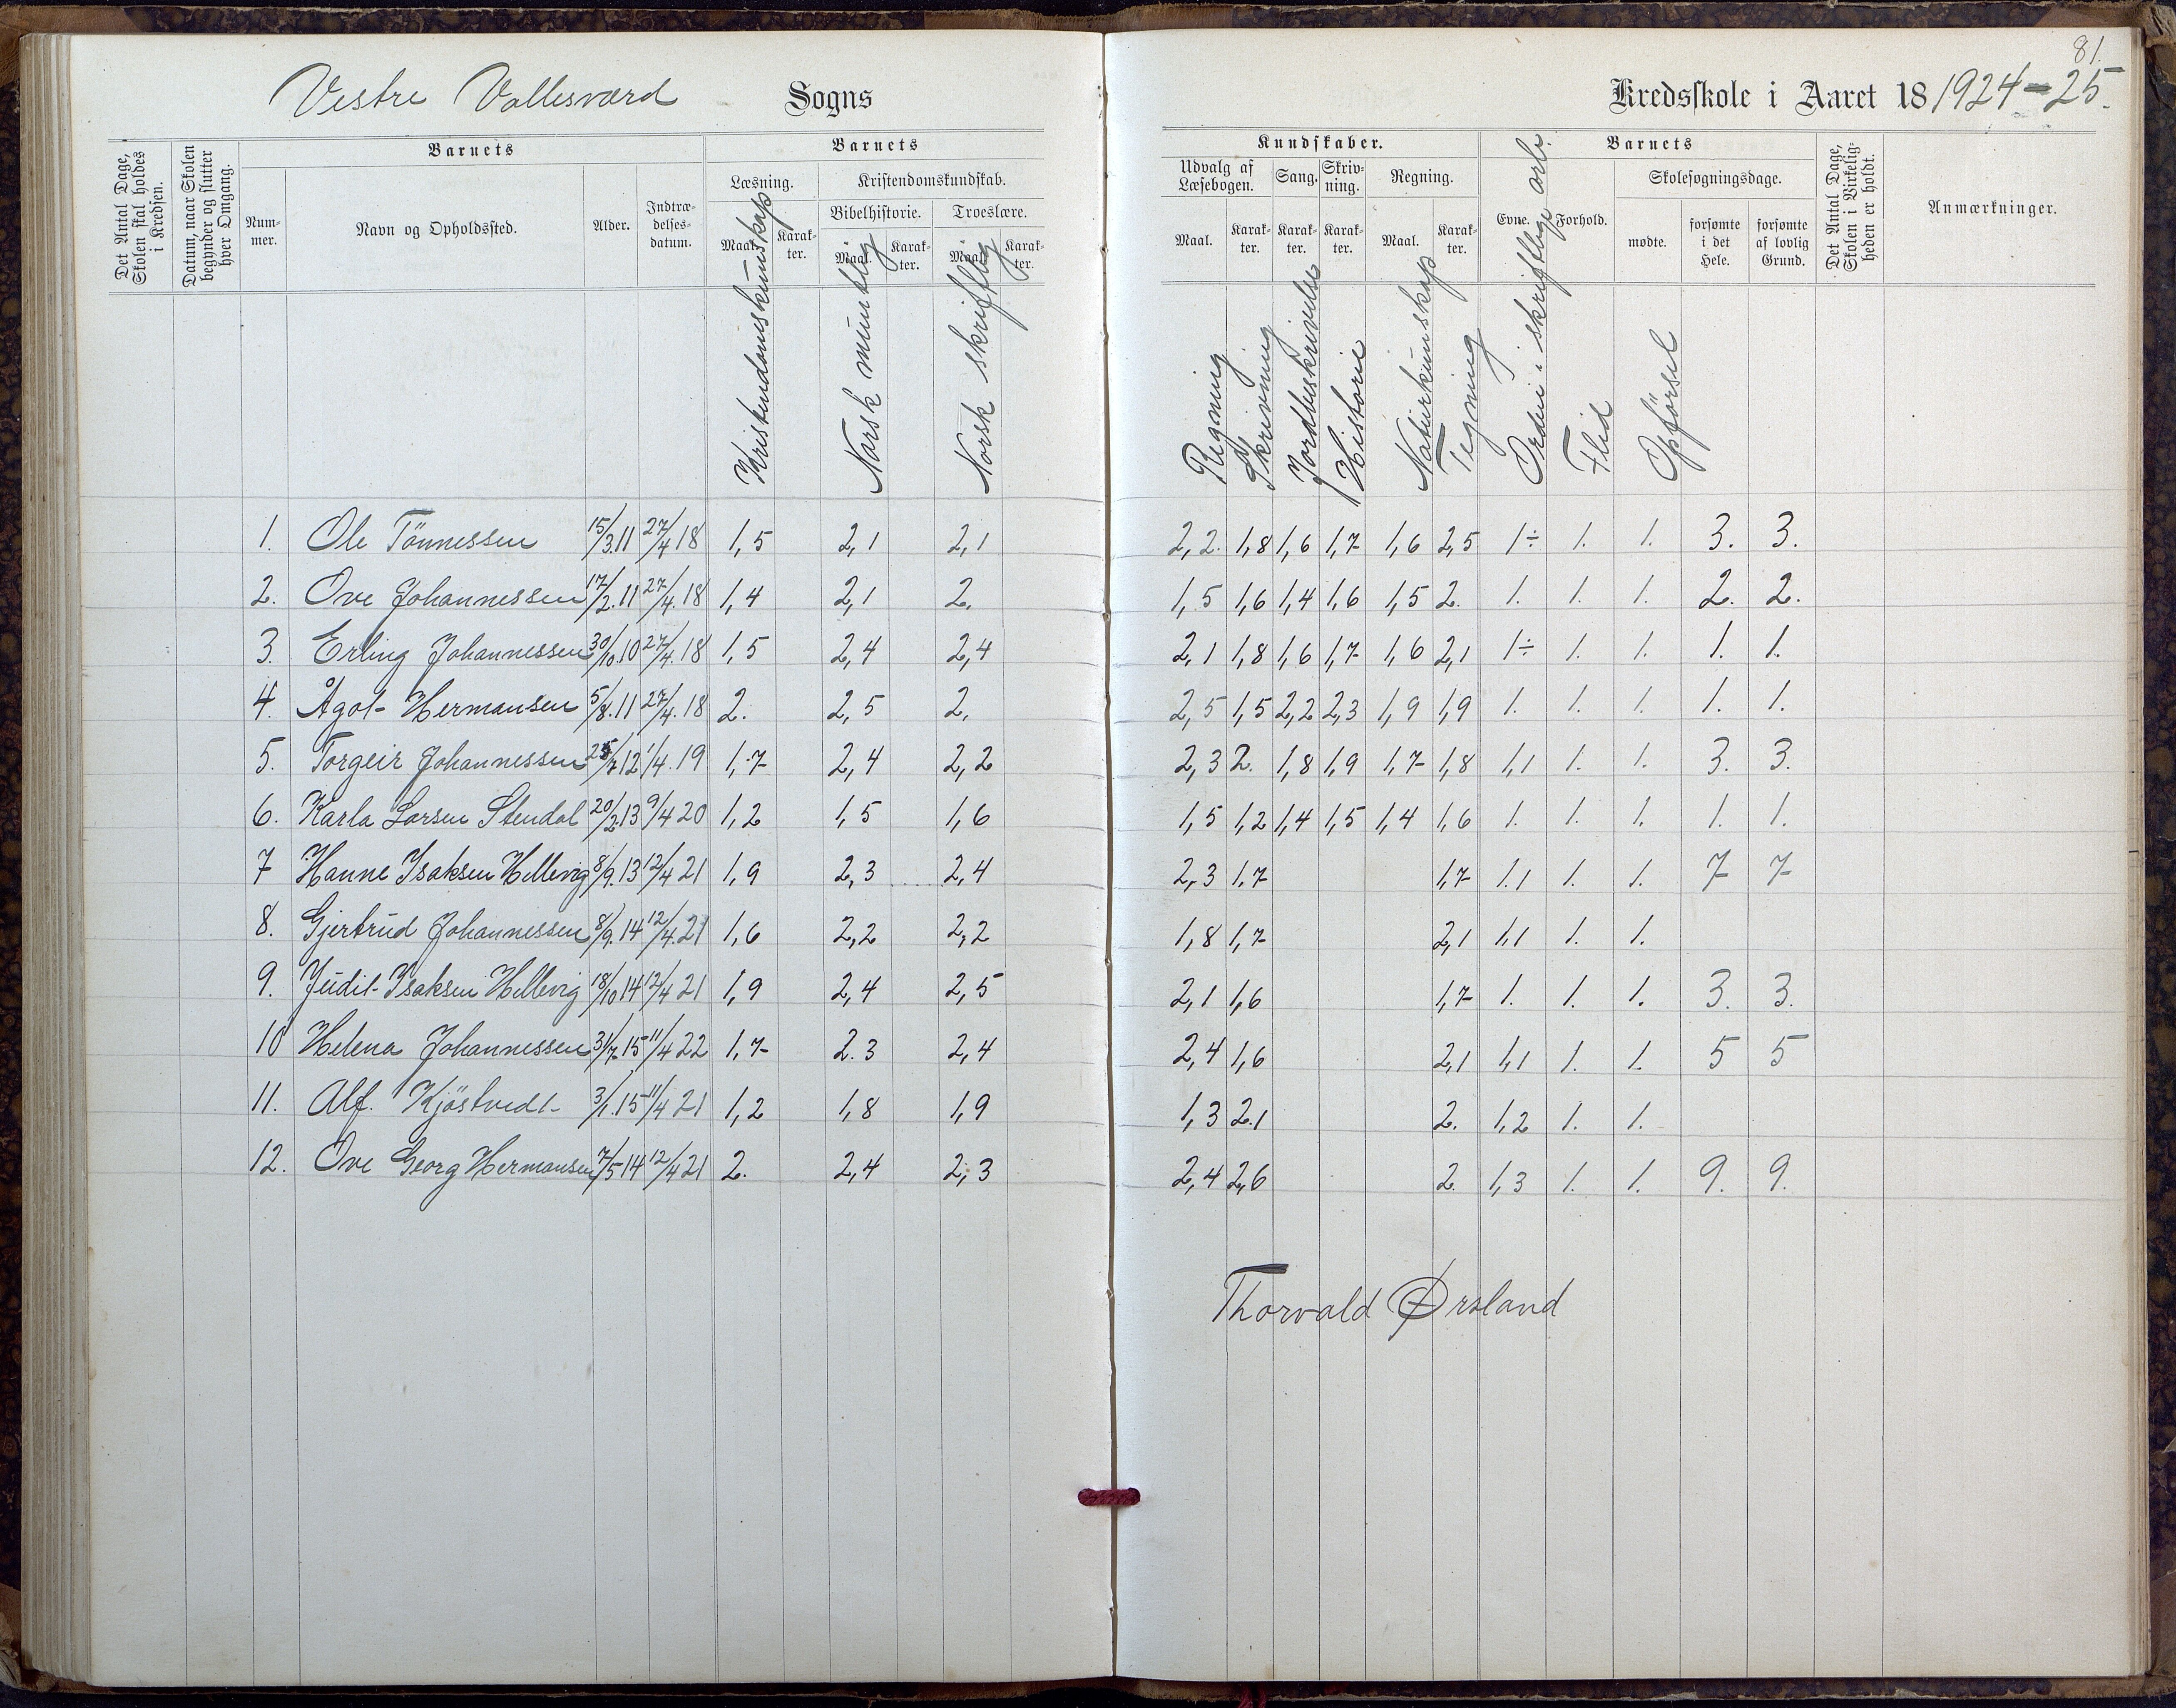 81.
Vestre Vallesværd Sogns Kredsskole i Aaret 18 1924-25.
Det Antal Dage, Skolen skal holdes i Kredsen.
Datum, naar Skolen begynder og slutter hver Omgang.
Barnets
Nummer.
Navn og Opholdssted.
Alder.
Indtrædelsesdatum.
Barnets
Læsning.
Kristendomskundskab.
Bibelhistorie. Troeslære.
Maal. Karakter. Maal. Karakter. Maal. Karakter.
Kundskaber.
Udvalg af Læsebogen. Sang. Skrivning. Regning.
Maal. Karakter. Karakter. Karakter. Maal. Karakter.
Barnets
Evne. Forhold.
Skolesøgningsdage.
mødte. forsømte i det Hele. forsømte af lovlig Grund.
Det Antal Dage, Skolen i Virkeligheden er holdt.
Anmærkninger.
Kristendomskunskap
Norsk muntlig
Norsk skriftlig
Regning
Skrivning
Jordbeskrivelse
Historie
Naturkunskap
Tegning
Orden i skriftlige arb.
Flid
Opförsel
1. Ole Tönnessen 15/3.11 27/4 18 1,5 2,1 2,1 2,2. 1,8 1,6 1,7 1,6 2,5 1÷ 1. 1. 3. 3.
2. Ove Johannessen 17/2.11 27/4.18 1,4 2,1 2. 1,5 1,6 1,4 1,6 1,5 2. 1. 1. 1. 2. 2.
3. Erling Johannessen 30/10.10 27/4.18 1,5 2,4 2,4 2,1 1,8 1,6 1,7 1,6 2,1 1÷ 1. 1. 1. 1.
4. Ågot Hermansen 5/8.11 27/4.18 2. 2,5 2. 2,5 1,5 2,2 2,3 1,9 1,9 1. 1. 1. 1. 1.
5. Torgeir Johannessen 12 1/4.19 1,7 2,4 2,2 2,3 2. 1,8 1,9 1,7 1,8 1,1 1. 1. 3. 3.
6. Karla Larsen Stendal 20/2.13 9/4 20 1,2 1,5 1,6 1,5 1,2 1,4 1,5 1,4 1,6 1. 1. 1. 1. 1.
7 Hanne Isaksen Hellevig 8/9.13 12/4 21 1,9 2,3 2,4 2,3 1,7 1,7 1.1 1. 1. 7 7
8. Gjertrud Johannessen 8/9.14 12/4.21 1,6 2,2 2,2 1,8 1,7 2,1 1,1 1. 1.
9. Judit Isaksen Hellevig 18/10 14 12/4 21 1,9 2,4 2,5 2,1 1,6 1,7 1. 1. 1. 3. 3.
10 Helena Johannessen 31/7.15 11/4 22 1,7 2.3 2,4 2,4 1,6 2,1 1,1 1. 1. 5 5
11. Alf. Kjöstvedt 3/1.15 11/4 21 1,2 1,8 1,9 1,3 2.1 2. 1,2 1. 1.
12. Ove Georg Hermansen 7/5 14 12/4 21 2. 2,4 2,3 2,4 2,6 2. 1,3 1. 1. 9. 9.
Thorvald Ørsland